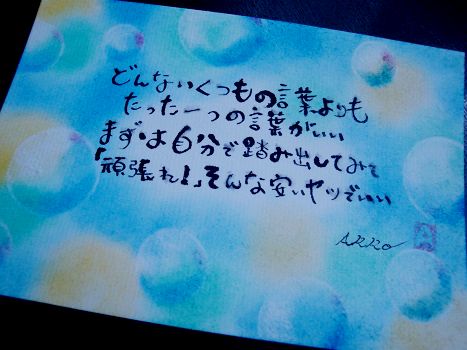 どんないくつもの言葉よりも
たった一つの言葉がいい
まずは自分で踏み出してみて
「頑張れ!」そんな安いヤツでいい
AKKO